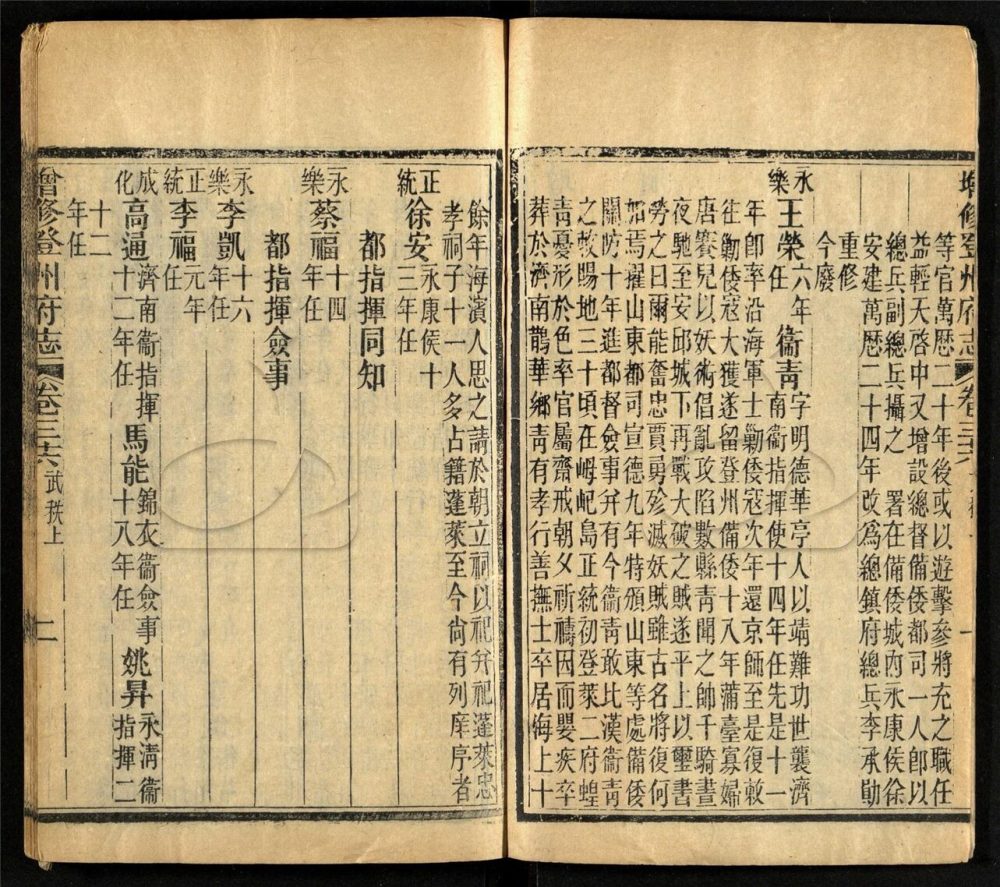 增修登州府志 卷三六 一
等官萬歷二十年後或以遊擊參將充之職任
益輕天啓中又增設總督備倭都司一人即以
總兵副總兵攝之 署在備倭城內永康侯徐
安建萬歷二十四年改爲總鎮府總兵李承勛
重修
今廢
永樂 王榮 六年任 衞青 字明德華亭人以靖難功世襲濟南衞指揮使十四年任先是十一
年即率沿海軍士勦倭寇次年還京師至是復敕
往勦倭寇大獲遂留登州備倭十八年蒲臺寡婦
唐賽兒以妖術倡亂攻陷數縣青聞之帥千騎晝
夜馳至安邱城下再戰大破之賊遂平上以璽書
勞之曰爾能奮忠賈勇殄滅妖賊雖古名將復何
加焉擢山東都司宣德九年特頒山東等處備倭
關防十年進都督僉事并有今衞青敢比漢衞青
之敕賜地三十頃在峔屺島正統初登萊二府蝗
青憂形於色率官屬齋戒朝夕祈禱因而嬰疾卒
葬於濟南鵲華鄉青有孝行善撫士卒居海上十
餘年海濱人思之請於朝立祠以祀并祀蓬萊忠
孝祠子十一人多占籍蓬萊至今尚有列庠序者
正統 徐安 永康侯十三年任
都指揮同知
永樂 蔡福 十四年任
都指揮僉事
永樂 李凱 十六年任
正統 李福 元年任
成化 高通 濟南衞指揮十二年任 馬能 錦衣衞僉事十八年任 姚昇 永淸衞指揮二
十二年任
增修登州府志 卷三六 武秩上 二